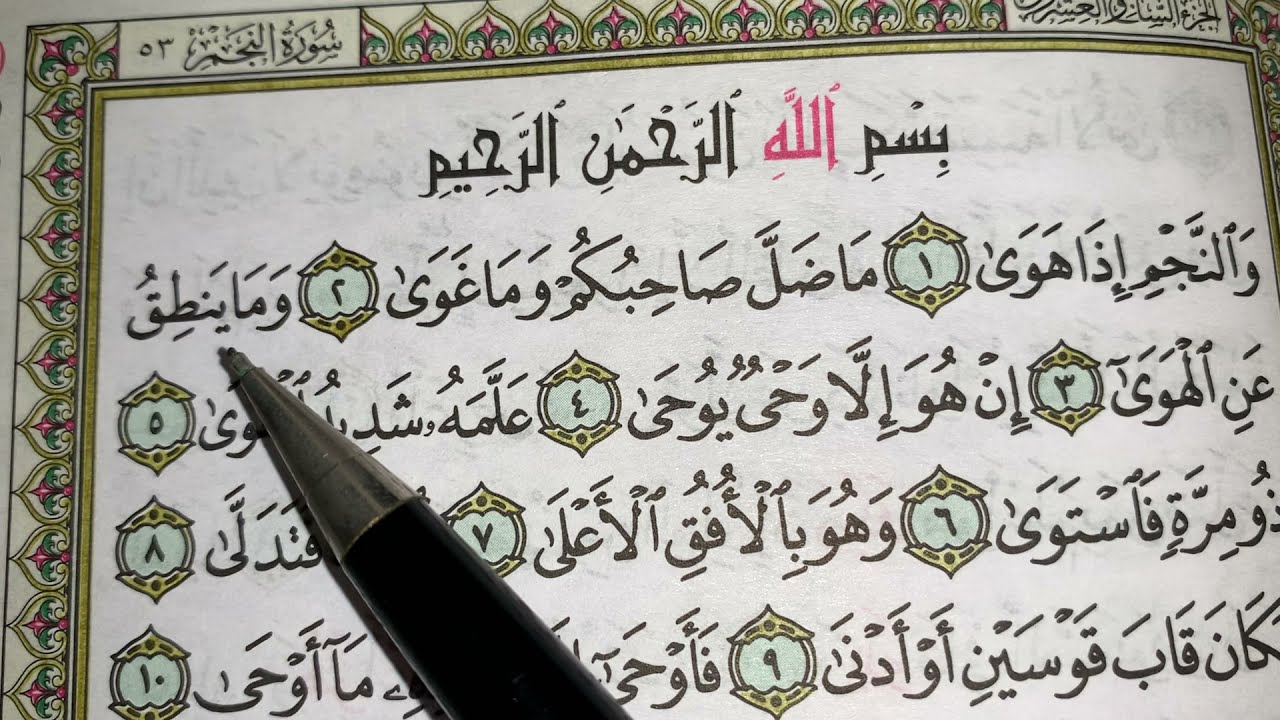 الجزء السابع والعشرون
سُورَةُ النَّجْمِ ٥٣
بِسْمِ ٱللَّهِ ٱلرَّحْمَٰنِ ٱلرَّحِيمِ
وَٱلنَّجْمِ إِذَا هَوَىٰ ١ مَا ضَلَّ صَاحِبُكُمْ وَمَا غَوَىٰ ٢ وَمَا يَنطِقُ
عَنِ ٱلْهَوَىٰٓ ٣ إِنْ هُوَ إِلَّا وَحْىٌ يُوحَىٰ ٤ عَلَّمَهُۥ شَدِيدُ ٱلْقُوَىٰ ٥
ذُو مِرَّةٍ فَٱسْتَوَىٰ ٦ وَهُوَ بِٱلْأُفُقِ ٱلْأَعْلَىٰ ٧ فَتَدَلَّىٰ ٨
فَكَانَ قَابَ قَوْسَيْنِ أَوْ أَدْنَىٰ ٩ فَأَوْحَىٰٓ مَآ أَوْحَىٰ ١٠